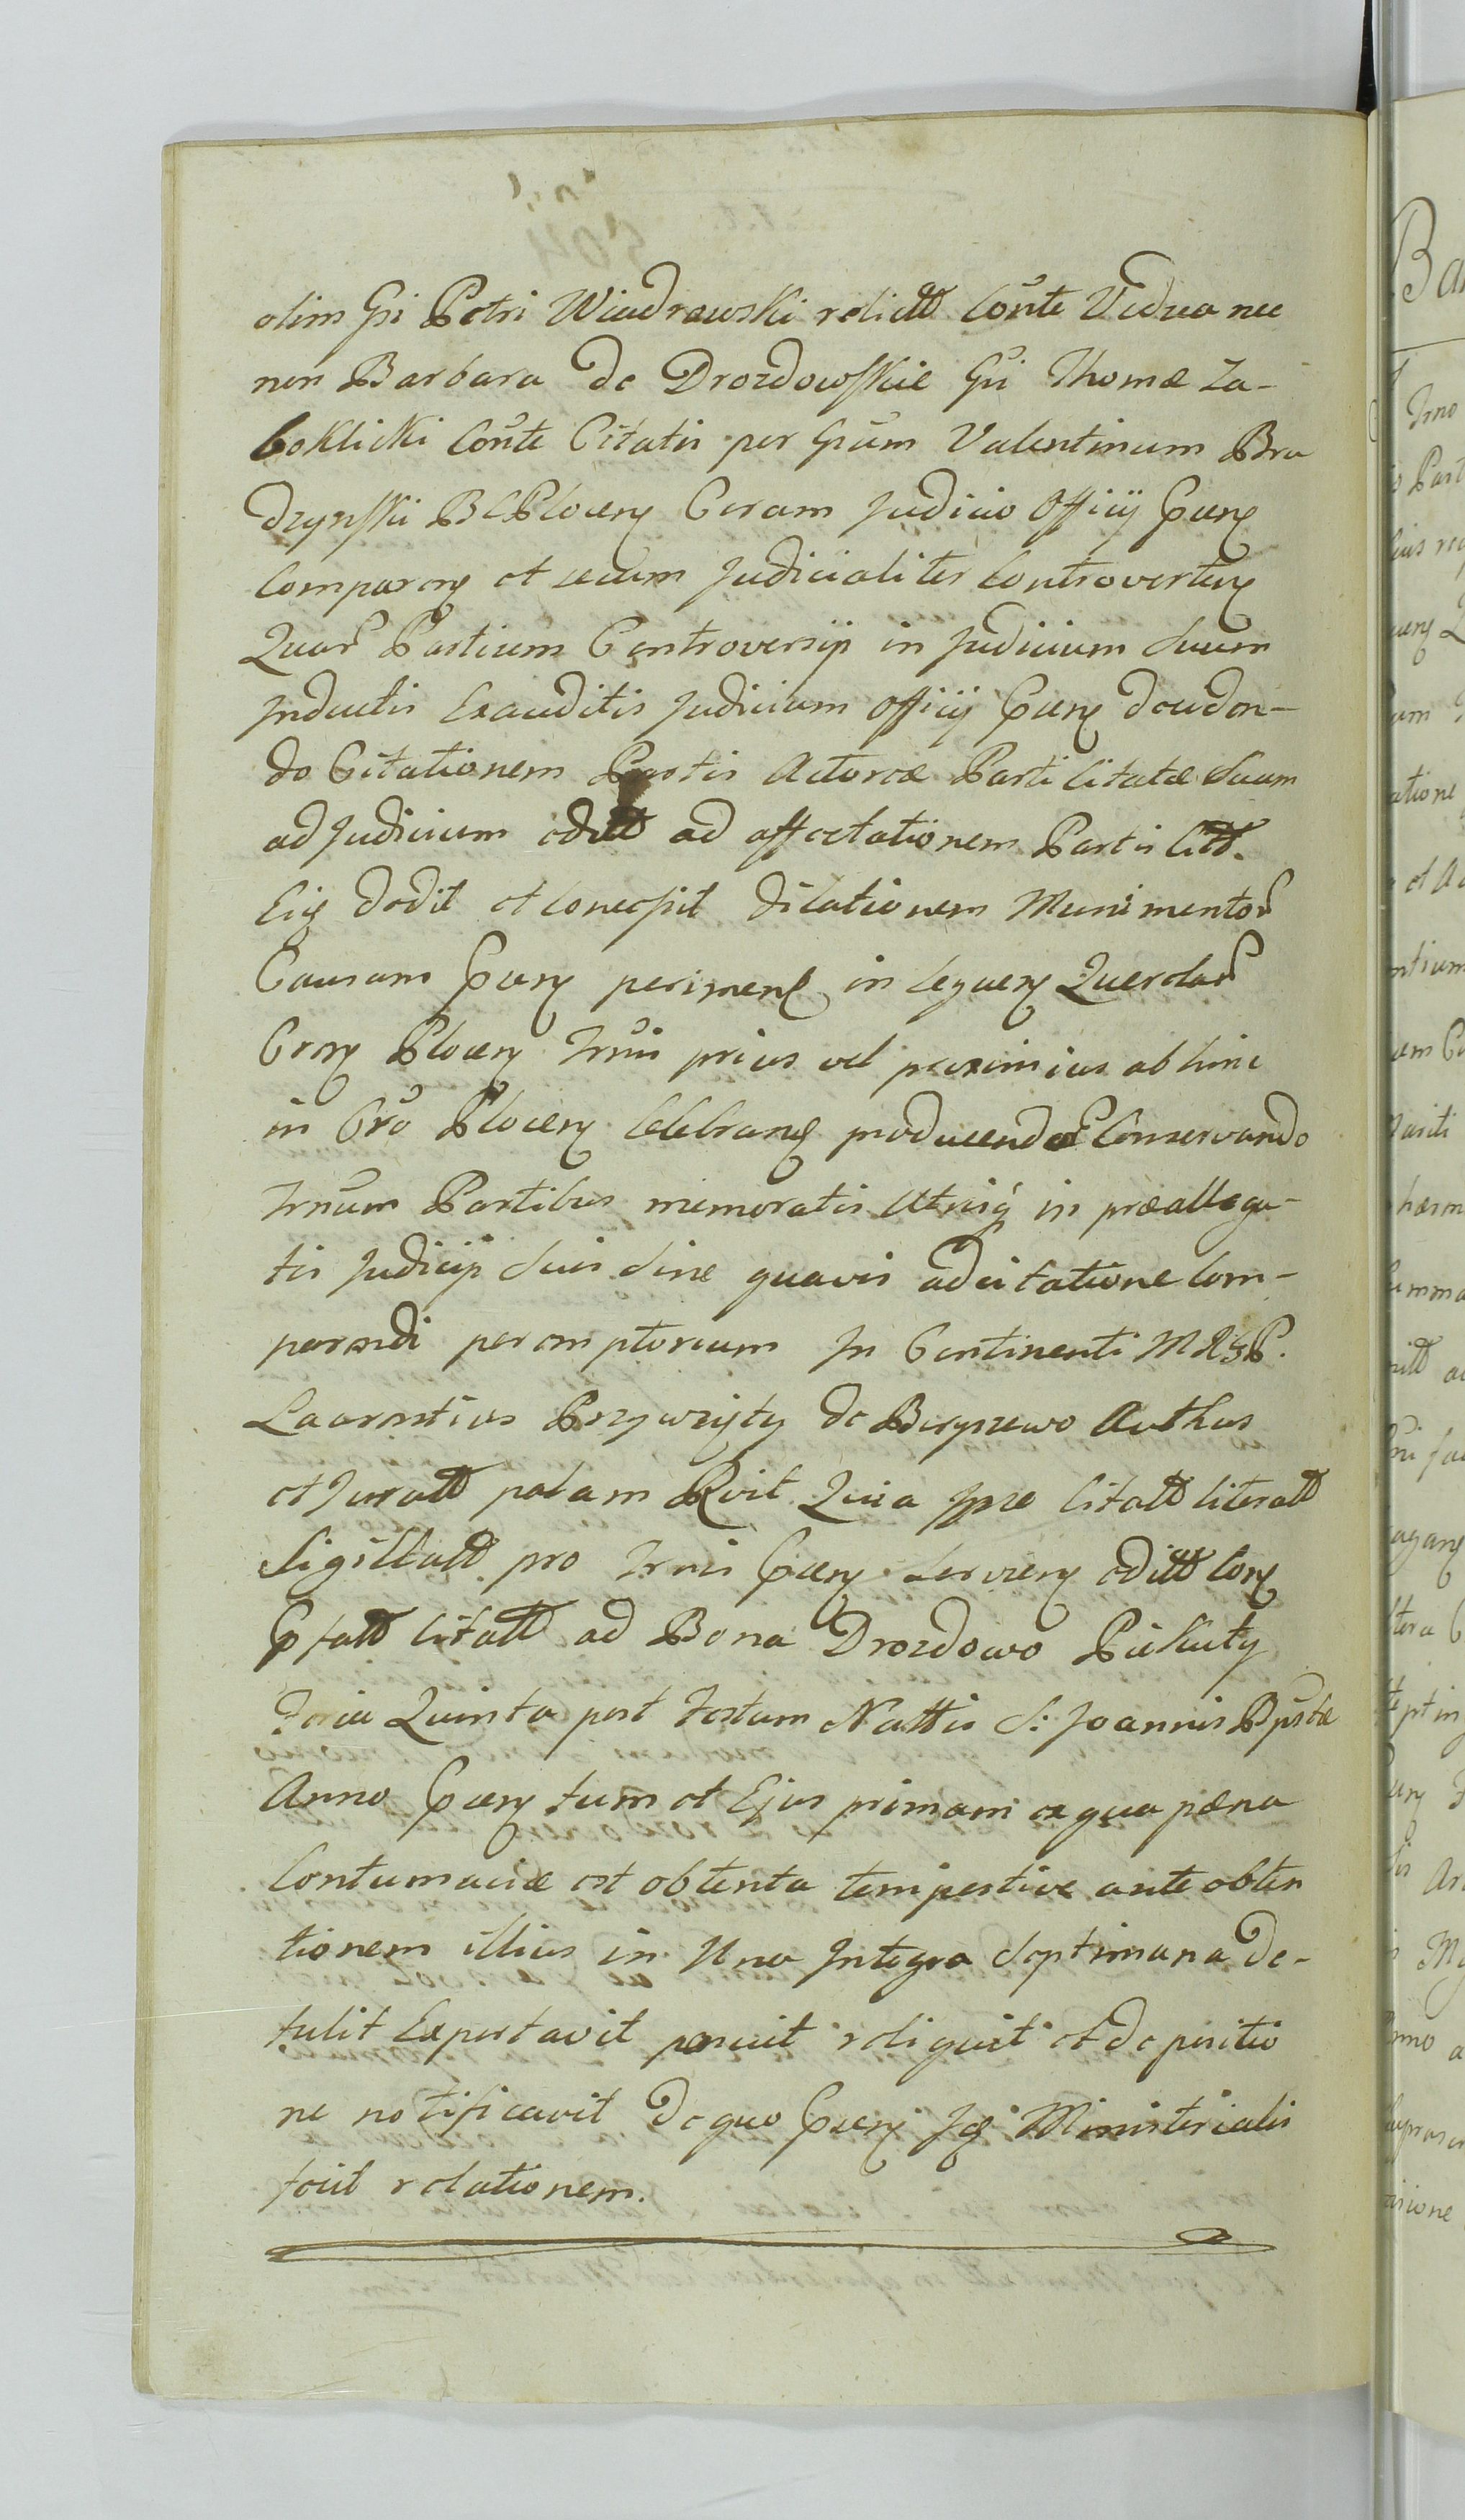 olim Gsi Petri Wiadrowski relictt Cõnte Vidua nec
non Barbara de Drozdowskie Gsi Thomæ Za-
boklicki Cõnte Citatis per Gsum Valentinum Bra
dzynski BCPlocen Coram Judicio Officij Pñen
Comparen et secum Judicialiter Controverten
Quar Partium Controversijs in Judicium Suum
Inductis Exauditis Judicium Officij Pñen devden-
do Citationem Partis Actoreæ Parti Citatæ Suum
ad Judicium editt ad affectationem Partis Citt.
Eig dedit et Concessit dilationem Munimentor
Causam Pñen perimen in Seguen Querelar
Cren Plocen Trnis prius vel proximius ab hinc
in Cro Plocen Celebrand producendor Conservando
Trnum Partibus memoratis Utrisq in præallega-
tis Judicijs Suis Sine quavis adcitatione Com-
parendi peremptorium In Continenti M R G P.
Laurentius Przywzięty de Boryszewo Authus
et Juratt palam Rvit Quia Ipse Citatt literatt
Sigillatt pro Trnis Pñen Servien editt Cong
Pfatt Citatt ad Bona Drozdowo Piekuty
Feria Quinta post Festum Nattis S: Joannis Bpstæ
Anno Pñen tum et Ejus primam ex qua pæna
Contumaciæ est obtenta tempestive ante obten
tionem illius in Una Integra Septimana De-
tulit Exportavit posuit reliquit et de positio
ne notificavit De quo Pñen Ig Ministerialis
fecit relationem.